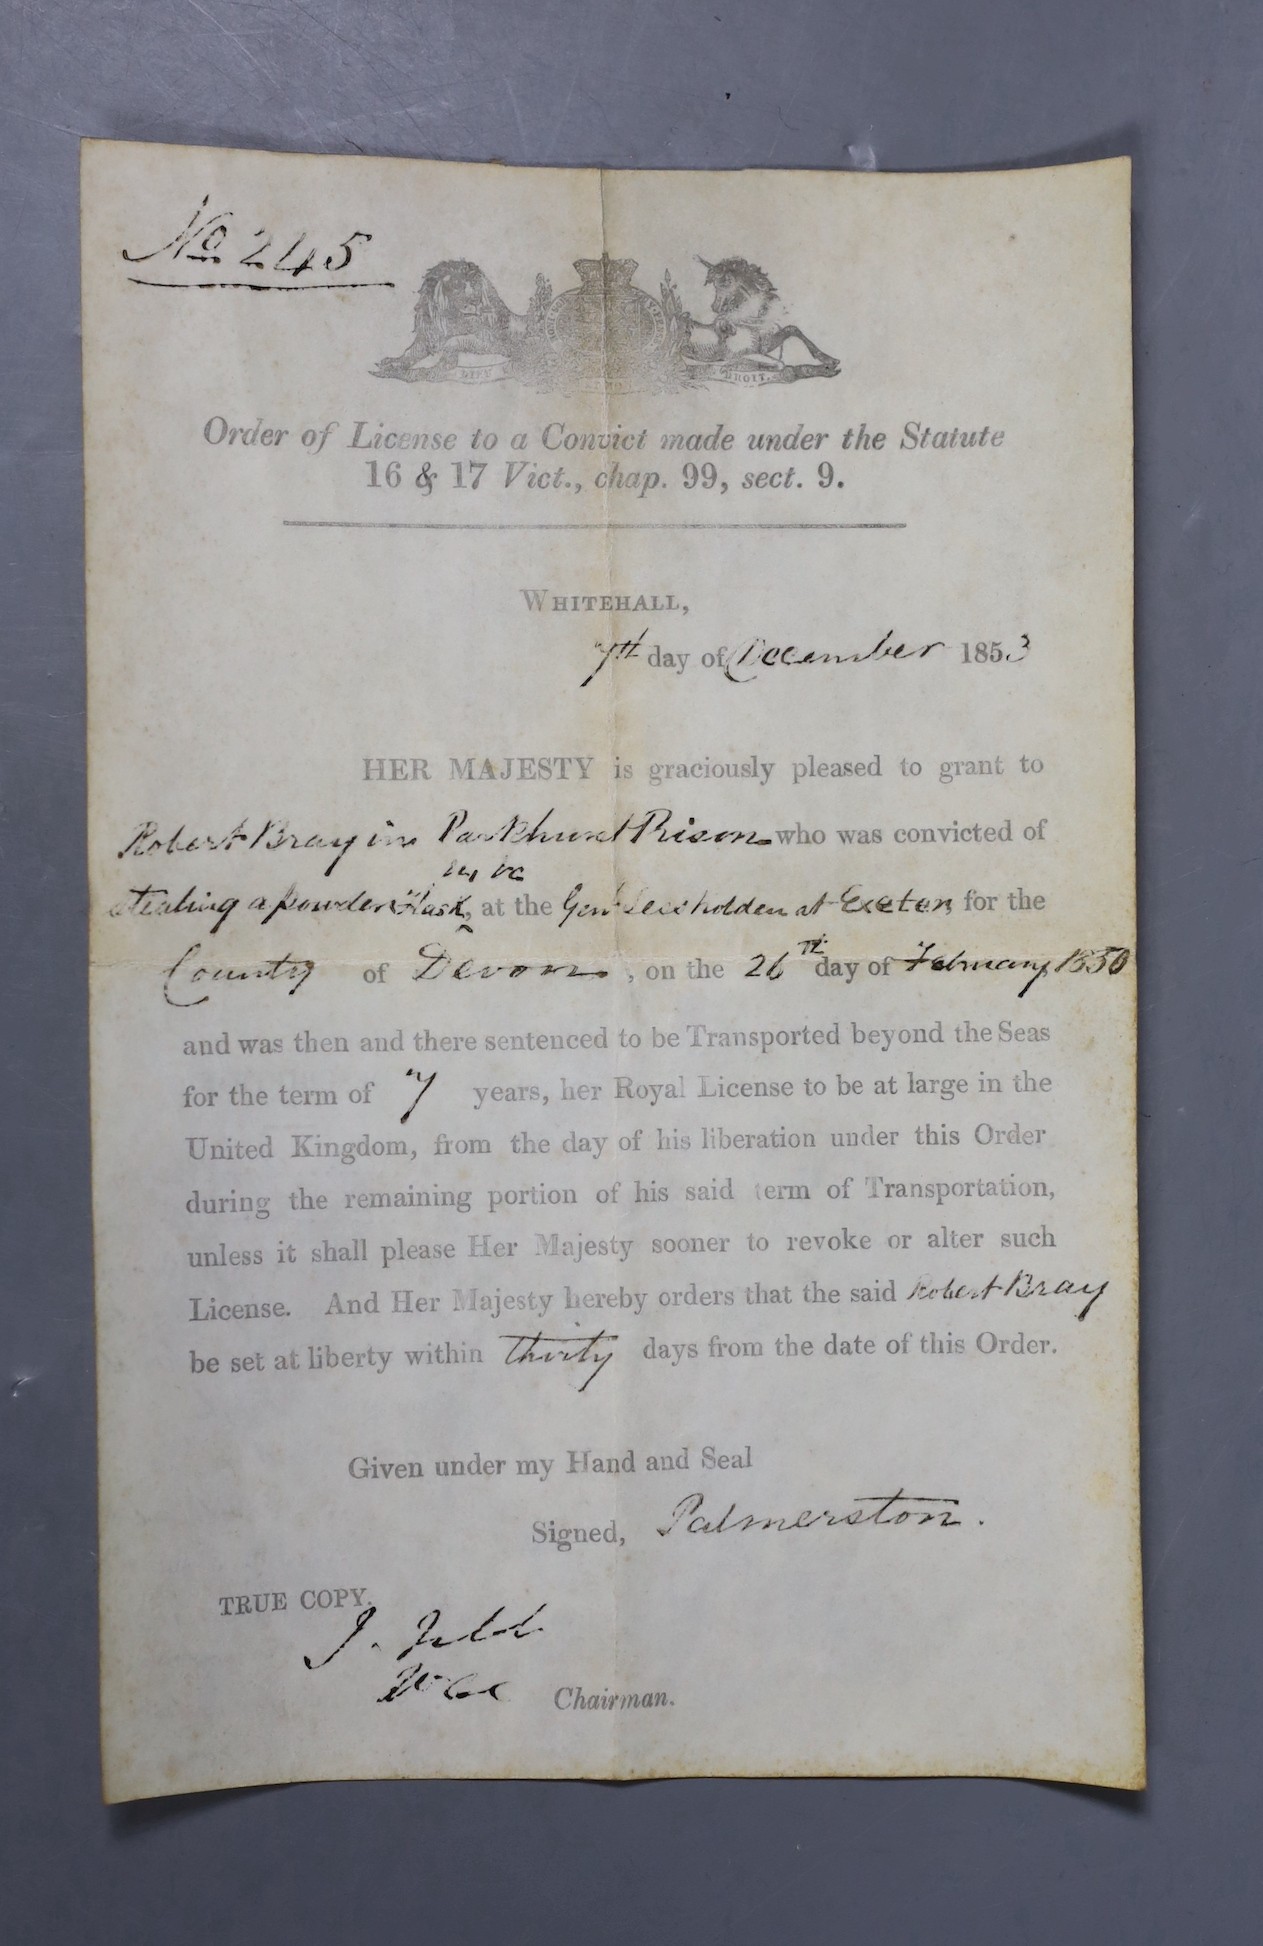 No 245
DIEU E
DROIT.
Order of License to a Convict made under the Statute
16 & 17 Vict., chap. 99, sect. 9.
WHITEHALL,
7th day of December 1853
HER MAJESTY is graciously pleased to grant to
Robert Bray in Parkhurst Prison who was convicted of
stealing a powder flask, at the Genl Sess holden at Exeter, for the
County of Devon, on the 26th day of February 1850
and was then and there sentenced to be Transported beyond the Seas
for the term of 7 years, her Royal License to be at large in the
United Kingdom, from the day of his liberation under this Order
during the remaining portion of his said term of Transportation,
unless it shall please Her Majesty sooner to revoke or alter such
License. And Her Majesty hereby orders that the said Robert Bray
be set at liberty within thirty days from the date of this Order.
Given under my Hand and Seal
Signed, Palmerston.
TRUE COPY.
J. Jebb
Chairman.